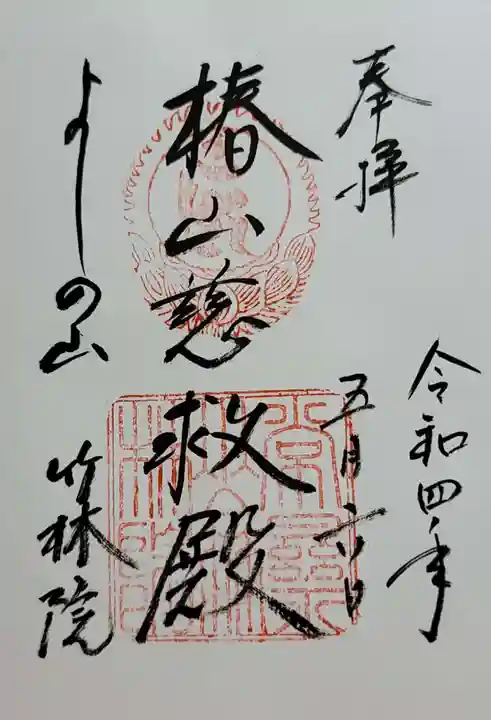 奉拝
令和四年
五月六日
椿山慈救殿
よしの山
竹林院